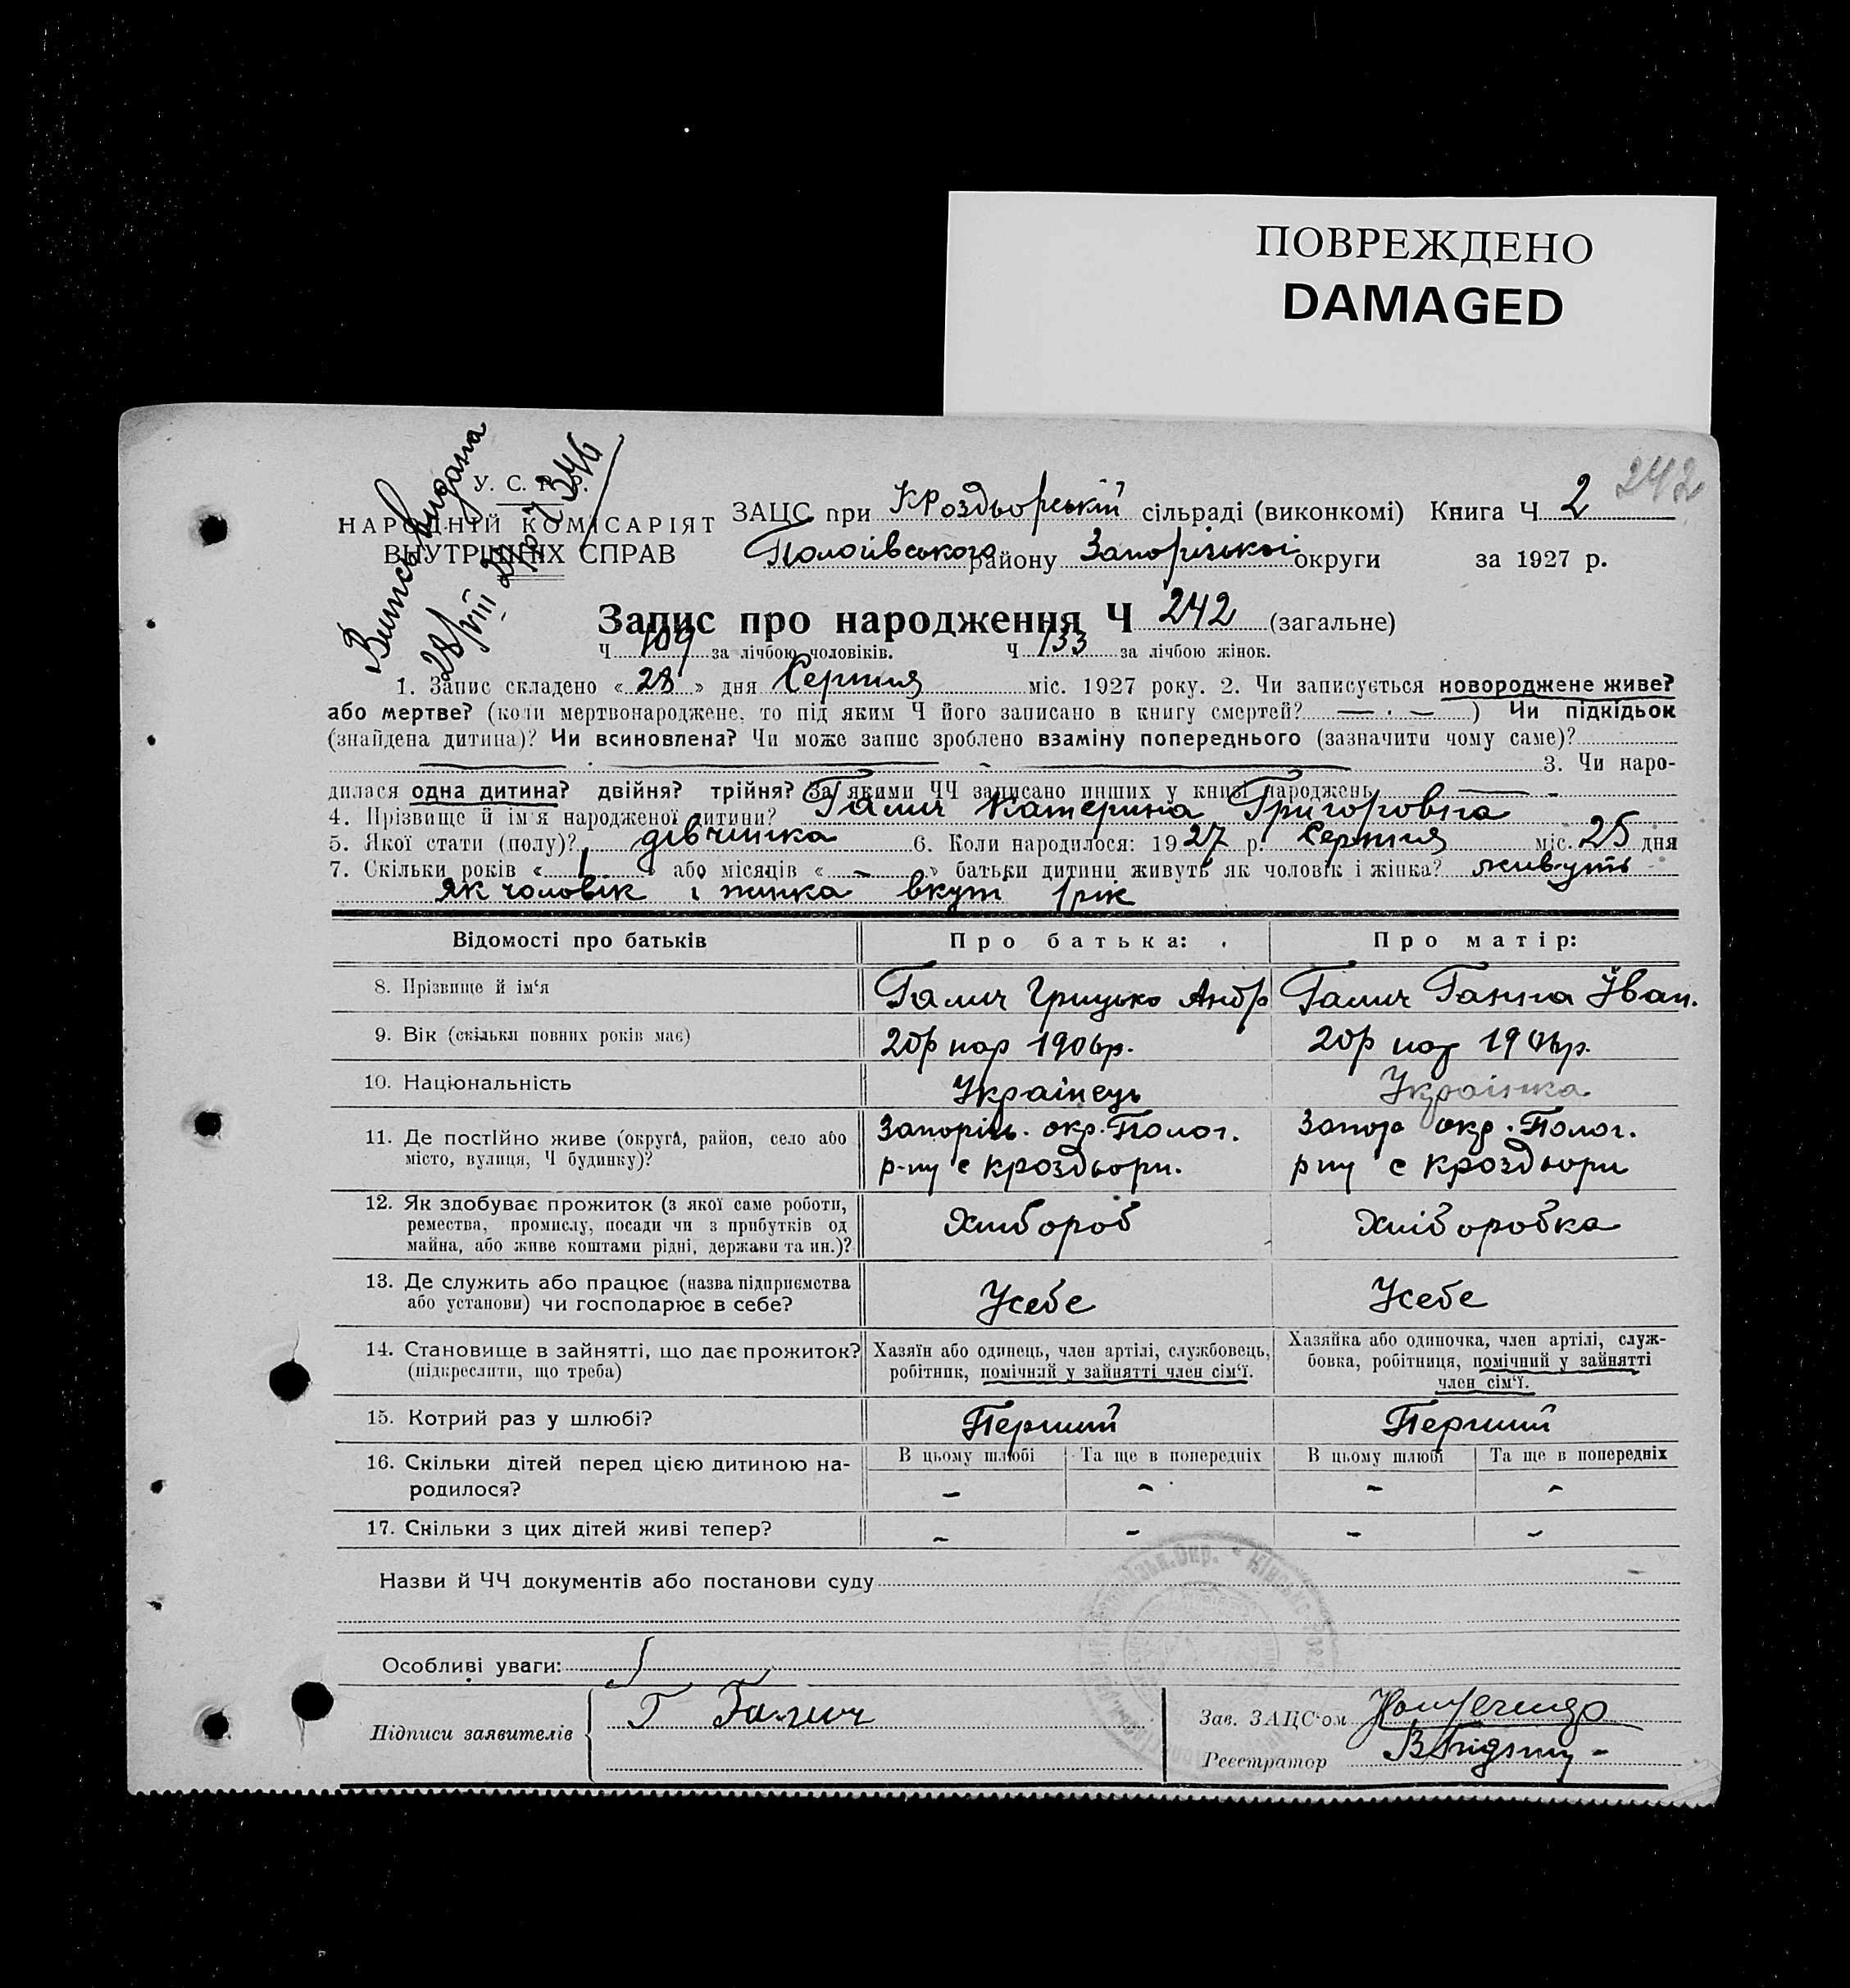 ПОВРЕЖДЕНО
DAMAGED
242
Випись видана
28/VIII 27р
У. С. Р. Р.
НАРОДНІЙ КОМІСАРІЯТ
ВНУТРІШНІХ СПРАВ
ЗАЦС при КРоздьорській сільраді (виконкомі) Книга Ч 2
Пологівського району Запорізької округи за 1927 р.
Запис про народження Ч 242 (загальне)
Ч 109 за лічбою чоловіків. Ч 133 за лічбою жінок.
1. Запис складено « 28 » дня Серпня міс. 1927 року. 2. Чи записується новороджене живе?
або мертве? (коли мертвонароджене, то під яким Ч його записано в книгу смертей? — . — ) Чи підкідьок
(знайдена дитина)? Чи всиновлена? Чи може запис зроблено взаміну попереднього (зазначити чому саме)?
3. Чи наро-
дилася одна дитина? двійня? трійня? За якими ЧЧ записано инших у книзі народжень —
4. Прізвище й ім'я народженої дитини? Галич Катерина Григоровна
5. Якої стати (полу)? дівчинка 6. Коли народилося: 1927 р. Серпня міс. 25 дня
7. Скільки років « 1 » або місяців « – » батьки дитини живуть як чоловік і жінка? живуть
як чоловік і жинка вкупі 1 рік
Відомості про батьків Про батька: Про матір:
8. Прізвище й ім‘я Галич Грицько Андр Галич Ганна Іван.
9. Вік (скільки повних років має) 20р нар 1906р. 20р нар 1906р.
10. Національність Українець Українка
11. Де постійно живе (округа, район, село або Запоріж. окр. Полог. Запор окр. Полог.
місто, вулиця, Ч будинку)? р-ну с Кроздьори. р ну с Кроздьори
12. Як здобуває прожиток (з якої саме роботи,
ремества, промислу, посади чи з прибутків од Хлибороб Хліборобка
майна, або живе коштами рідні, держави та ин.)?
13. Де служить або працює (назва підприємства
або установи) чи господарює в себе? Усебе Усебе
14. Становище в зайнятті, що дає прожиток? Хазяїн або одинець, член артілі, службовець, Хазяйка або одиночка, член артілі, служ-
(підкреслити, що треба) робітник, помічний у зайнятті член сім‘ї. бовка, робітниця, помічний у зайнятті
член сім‘ї.
15. Котрий раз у шлюбі? Перший Перший
16. Скільки дітей перед цією дитиною на- В цьому шлюбі Та ще в попередніх В цьому шлюбі Та ще в попередніх
родилося? – – – –
17. Скільки з цих дітей живі тепер? – – – –
Назви й ЧЧ документів або постанови суду
Особливі уваги:
Підписи заявителів Г Галич
Зав. ЗАЦС‘ом
Реєстратор